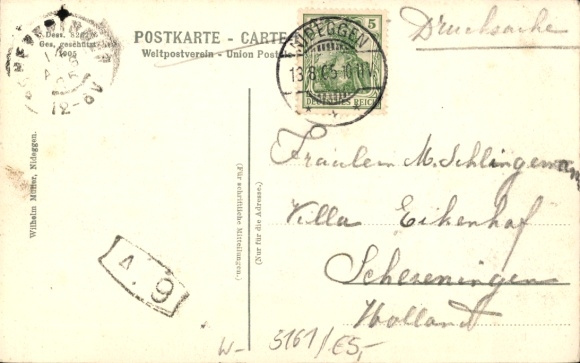 Dess. 826
Ges. geschützt
1905
POSTKARTE - CARTE
Weltpostverein - Union Post
5
NIDEGGEN
13.8.05
DEUTSCHES REICH
Drucksache
12-8V
Wilhelm Müller, Nideggen.
(Für schriftliche Mitteilungen.)
(Nur für die Adresse.)
Fräulein M. Schlingemann
Villa Eikenhof
Scheveningen
Holland
A. 9
W- 5161/E5,-